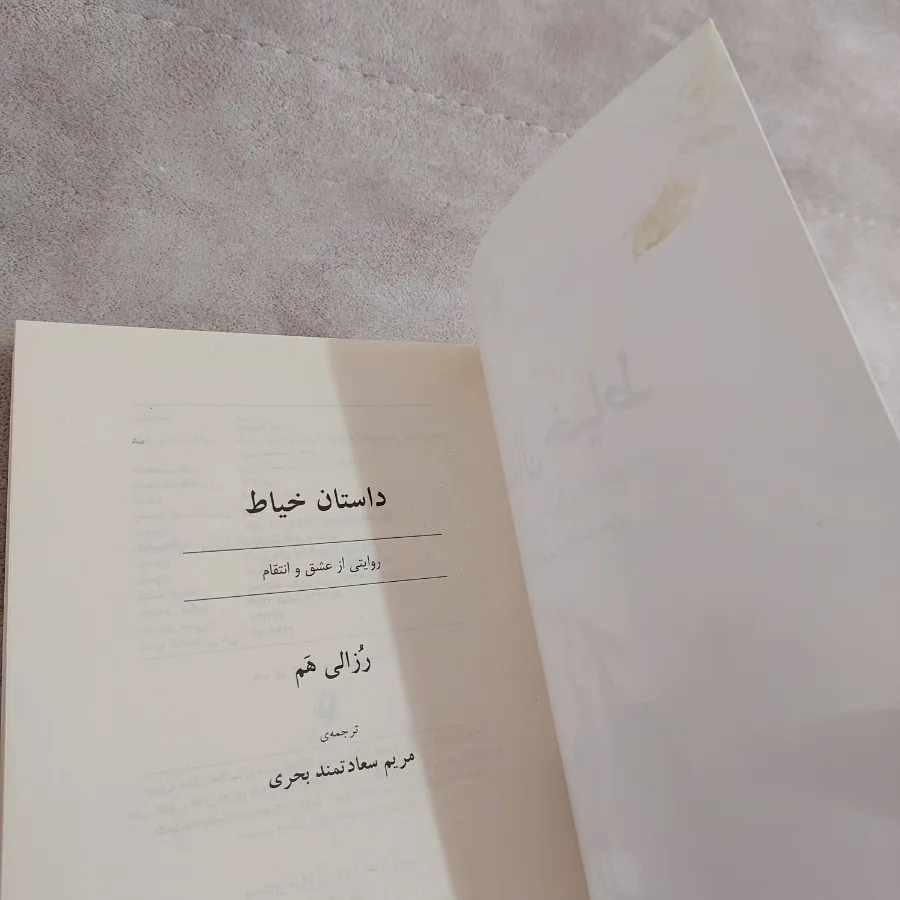 داستان خیاط
روایتی از عشق و انتقام
رُزالی هَم
ترجمه‌ی
مریم سعادتمند بحری